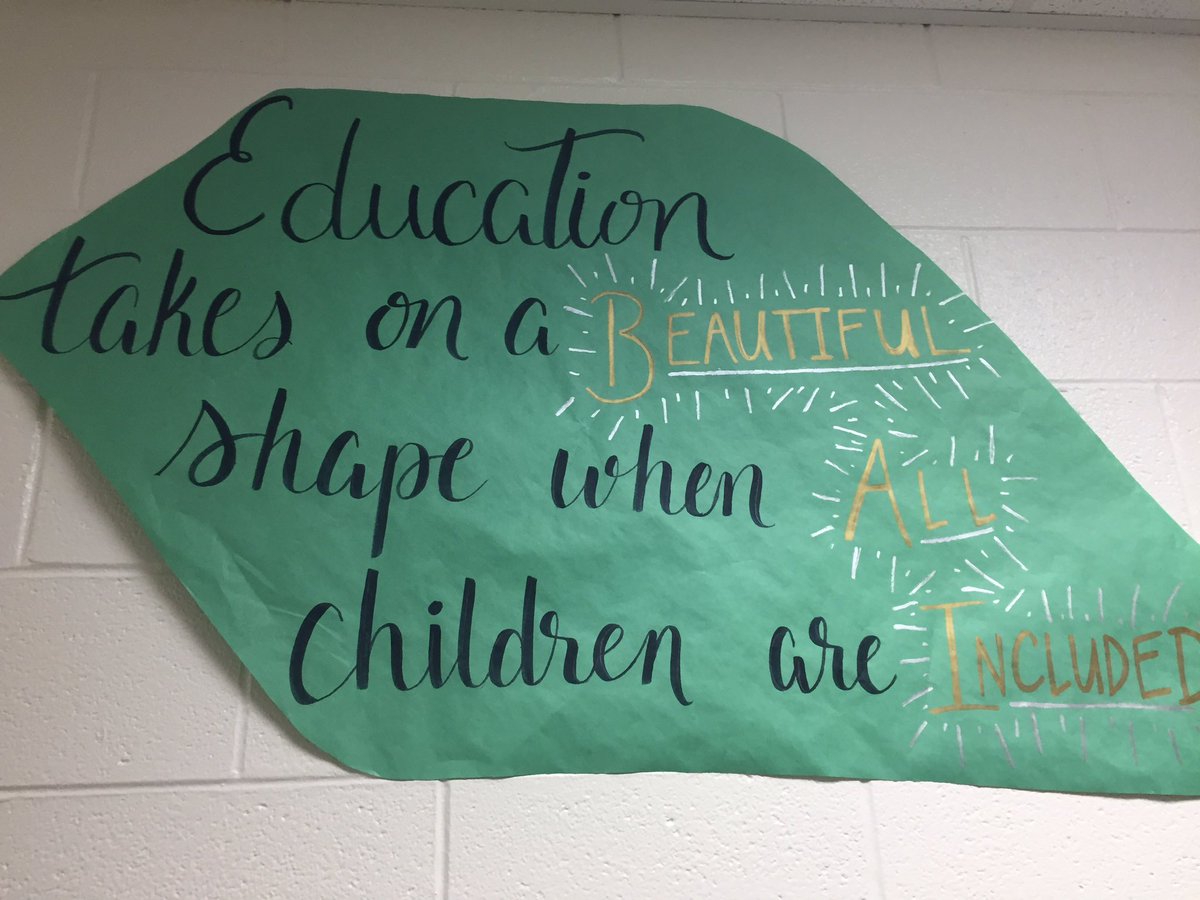 Education
takes on a BEAUTIFUL
shape when ALL
children are INCLUDED